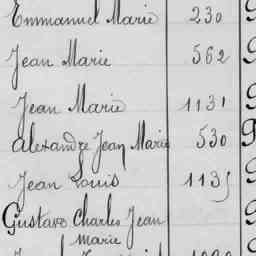 Emmanuel Marie 230
Jean Marie 562
Jean Marie 1131
Alexandre Jean Marie 530
Jean Louis 1135
Gustave Charles Jean
Marie